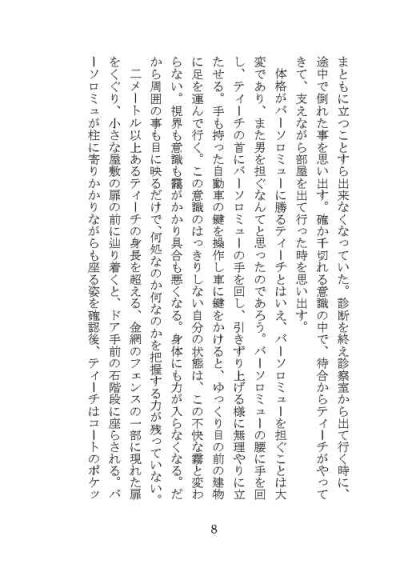 まともに立つことすら出来なくなっていた。診断を終え診察室から出て行く時に、
途中で倒れた事を思い出す。確か千切れる意識の中で、待合からティーチがやって
きて、支えながら部屋を出て行った時を思い出す。
　体格がバーソロミューに勝るティーチとはいえ、バーソロミューを担ぐことは大
変であり、また男を担ぐなんてと思ったのであろう。バーソロミューの腰に手を回
し、ティーチの首にバーソロミューの手を回し、引きずり上げる様に無理やりに立
たせる。手も持った自動車の鍵を操作し車に鍵をかけると、ゆっくり目の前の建物
に足を運んで行く。この意識のはっきりしない自分の状態は、この不快な霧と変わ
らない。視界も意識も靄がかかり具合も悪くなる。身体にも力が入らなくなる。だ
から周囲の事も目に映るだけで、何処なのか何なのかを把握する力が残っていない。
　二メートル以上あるティーチの身長を超える、金網のフェンスの一部に現れた扉
をくぐり、小さな屋敷の扉の前に辿り着くと、ドア手前の石階段に座らされる。バ
ーソロミュが柱に寄りかかりながらも座る姿を確認後、ティーチはコートのポケッ
8